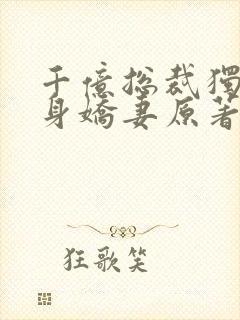 千億总裁獨
身嬌妻原著
狂歌笑